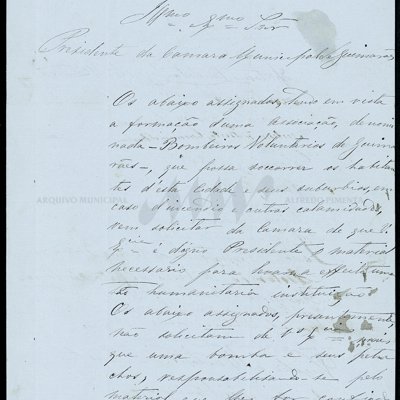 Illmo Exmo Snr
Presidente da Camara Municipal de Guimarães
Os abaixo assignados, tendo em vista
a formação d'uma associação, denomi
nada - Bombeiros Voluntarios de Guima
rães -, que possa soccorrer os habitan
tes d'esta cidade e seus suburbios, em
caso d'incendio e outras calamidades,
vem solicitar da Camara de que V.
Exia é digno Presidente o material
necessario para levar a effeito
tão humanitaria instituição.
Os abaixo assignados, presentemente,
não solicitam de V. Exia mais
que uma bomba e seus petre
chos, responsabilisando-se pelo
material que lhes for confiado
ARQUIVO MUNICIPAL ALFREDO PIMENTA